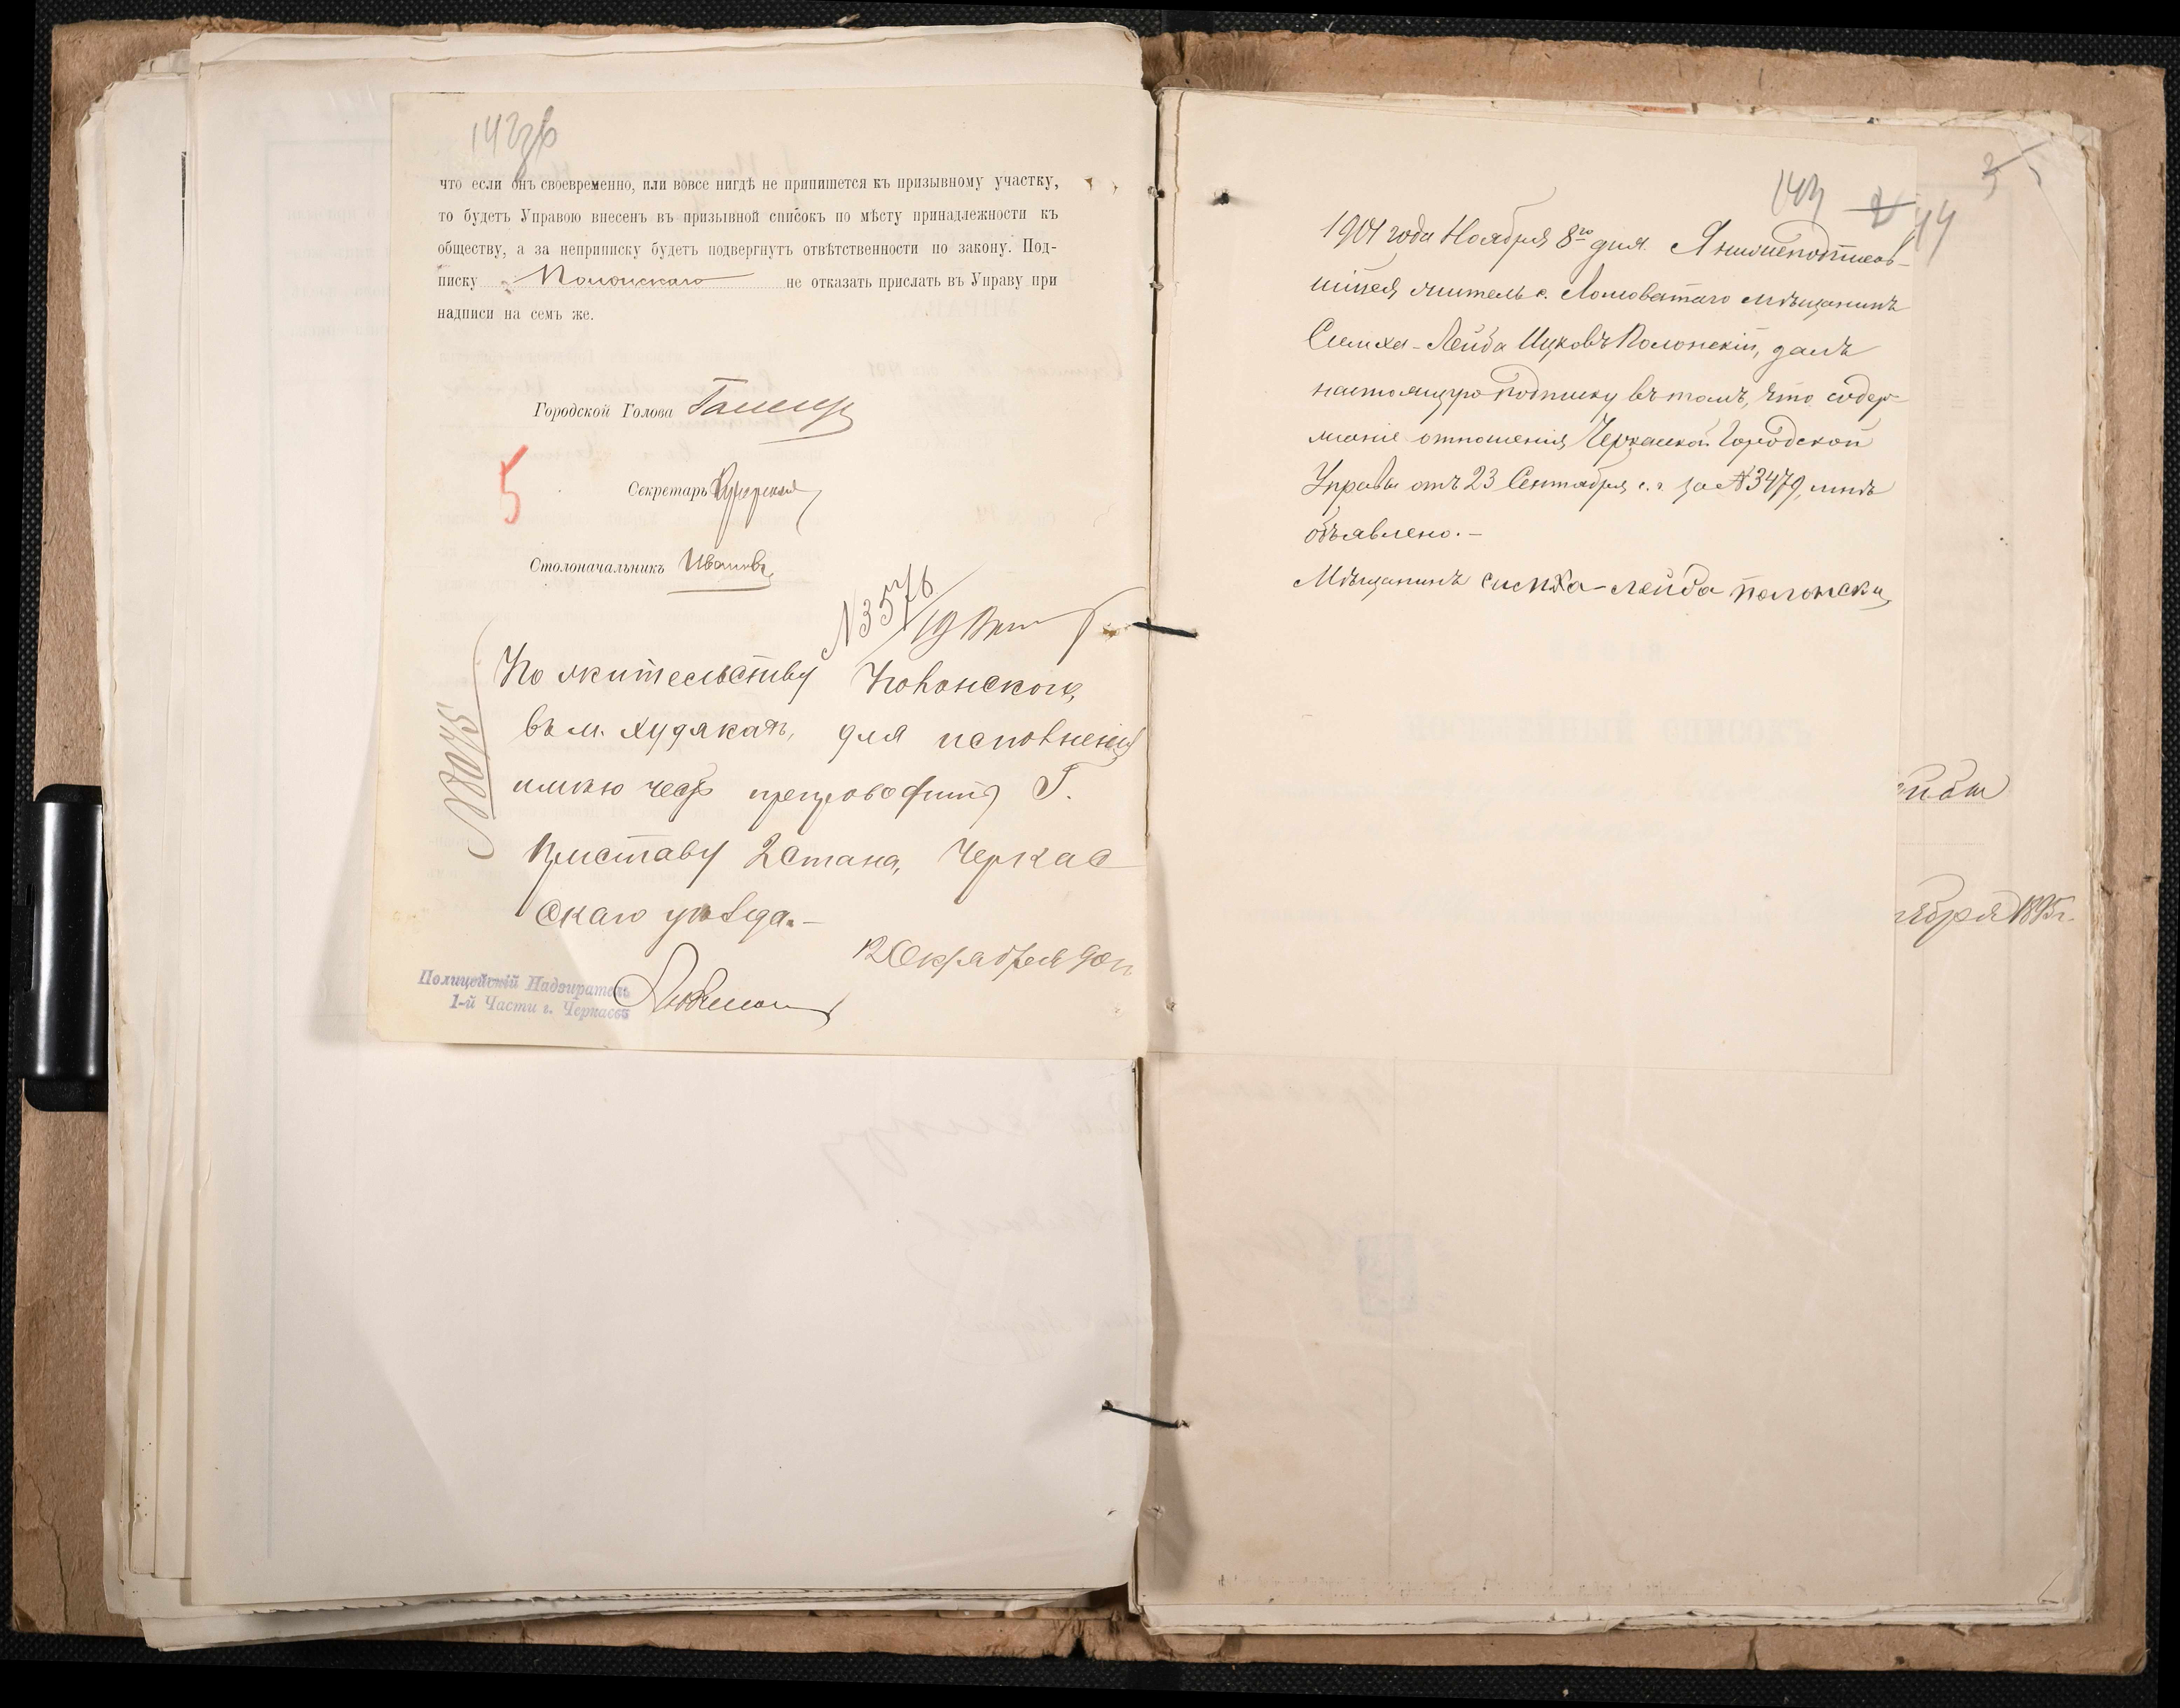 что если онъ своевременно, или вовсе нигдѣ не припишется къ призывному участку,
то будетъ Управою внесенъ въ призывной списокъ по мѣсту принадлежности къ
обществу, а за неприписку будетъ подвергнутъ отвѣтственности по закону. Под-
писку Полонскаго не отказать прислать въ Управу при
надписи на семъ же.
Городской Голова
5
Секретарь
Столоначальникъ Ивановъ
N3576
По жительству Полонскаго,
въ м. Худякахъ, для исполненія
имѣю честь препроводить Г.
Приставу 2 Стана, Черкас
скаго уѣзда.—
12 Октября 901 г.
Полицейскій Надзиратель
1-й Части г. Черкассъ
143
2
44
3
1901 года Ноября 8го дня. Я нижеподписав-
шійся житель с. Ломоватаго мѣщанинъ
Симха-Лейба Ицковъ Полонскій, далъ
настоящую подписку въ томъ, что содер-
жаніе отношенія Черкасской Городской
Управы отъ 23 Сентября с. г. за №3479, мнѣ
объявлено.—
Мѣщанинъ симха-лейба полонски
ября 1895 г.